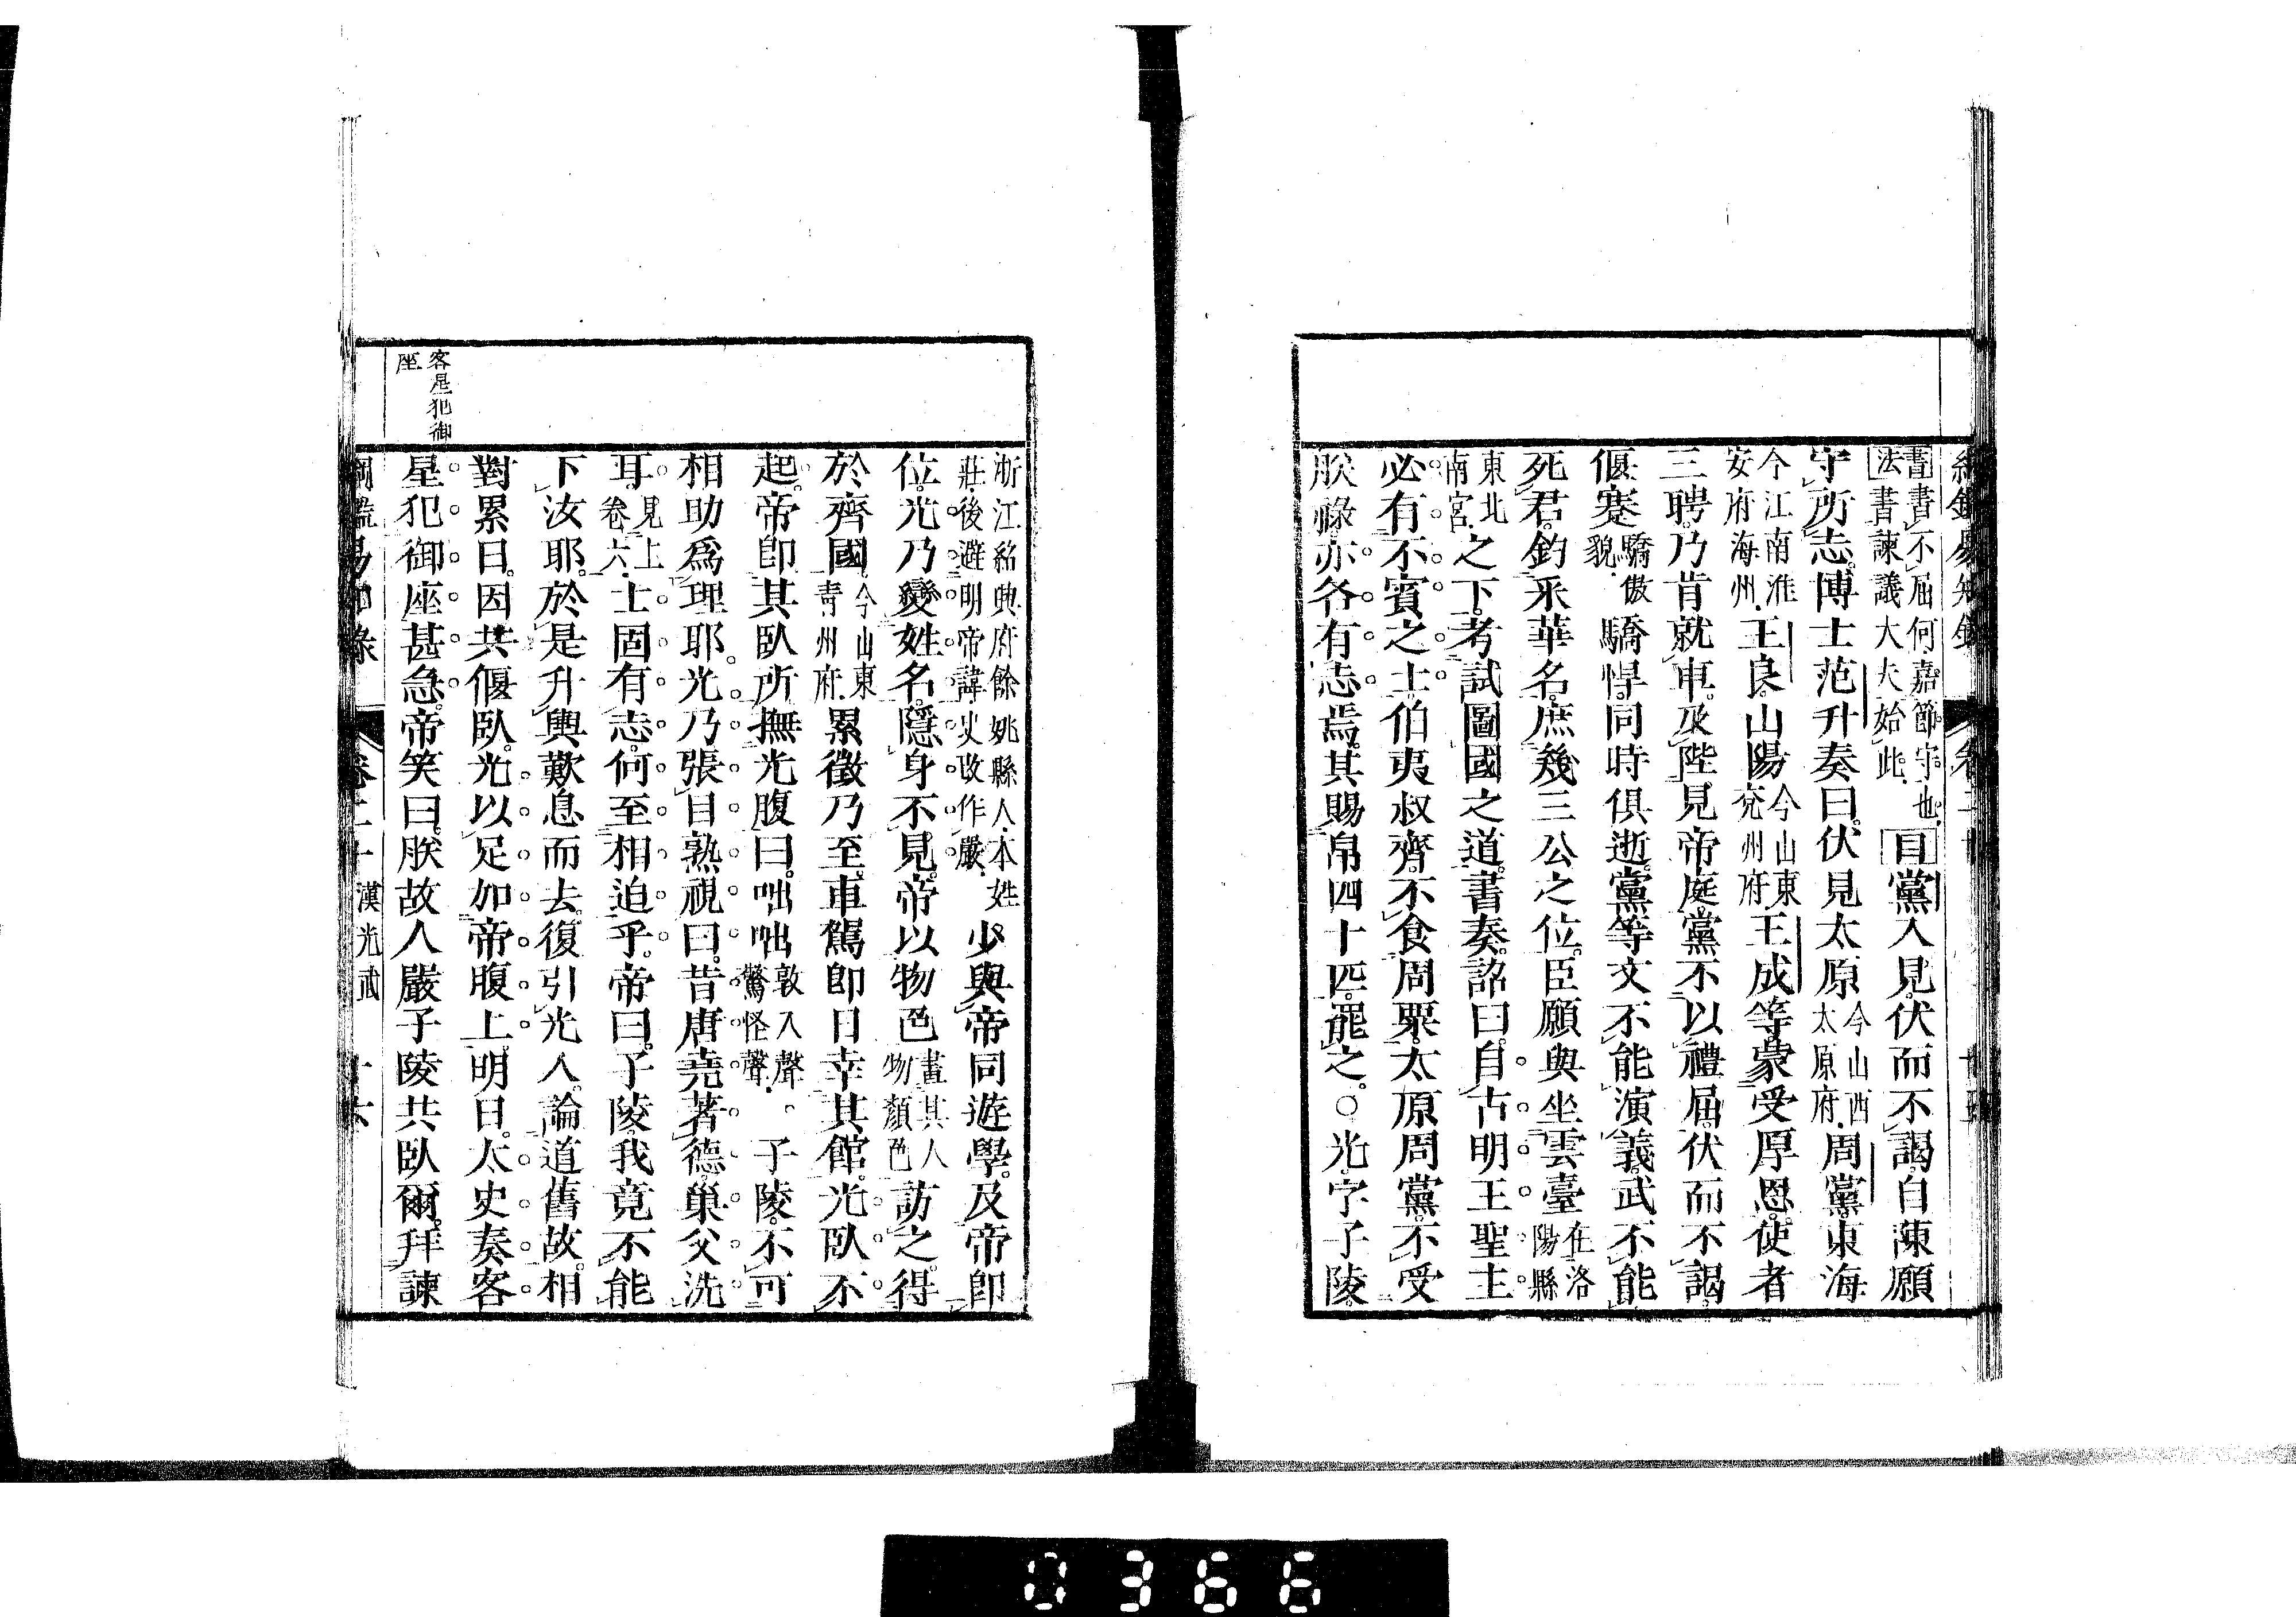 書書不屈何嘉節守也
法書諫議大夫始此
目黨入見伏而不謁自陳願
守所志博士范升奏曰伏見太原今山西太原府周黨東海
今江南淮安府海州王良山陽今山東兗州府王成等蒙受厚恩使者
三聘乃肯就車及陛見帝庭黨不以禮屈伏而不謁
偃蹇驕傲貌驕悍同時俱逝黨等文不能演義武不能
死君釣采華名庶幾三公之位臣願與坐雲臺在洛陽縣
東北南宮之下考試圖國之道書奏詔曰自古明王聖主
必有不賓之士伯夷叔齊不食周粟太原周黨不受
朕祿亦各有志焉其賜帛四十匹罷之○光字子陵
浙江紹興府餘姚縣人本姓莊後避明帝諱史改作嚴少與帝同遊學及帝即
位光乃變姓名隱身不見帝以物色畫其人物顏色訪之得
於齊國今山東青州府累徵乃至車駕即日幸其館光臥不
起帝即其臥所撫光腹曰咄咄敦入聲驚怪聲子陵不可
相助爲理耶光乃張目熟視曰昔唐堯著德巢父洗
耳見上卷六士固有志何至相迫乎帝曰子陵我竟不能
下汝耶於是升輿歎息而去復引光入論道舊故相
對累日因共偃臥光以足加帝腹上明日太史奏客
客星犯御座
星犯御座甚急帝笑曰朕故人嚴子陵共臥爾拜諫
綱鑑易知錄 卷二十 漢光武 十六
0366